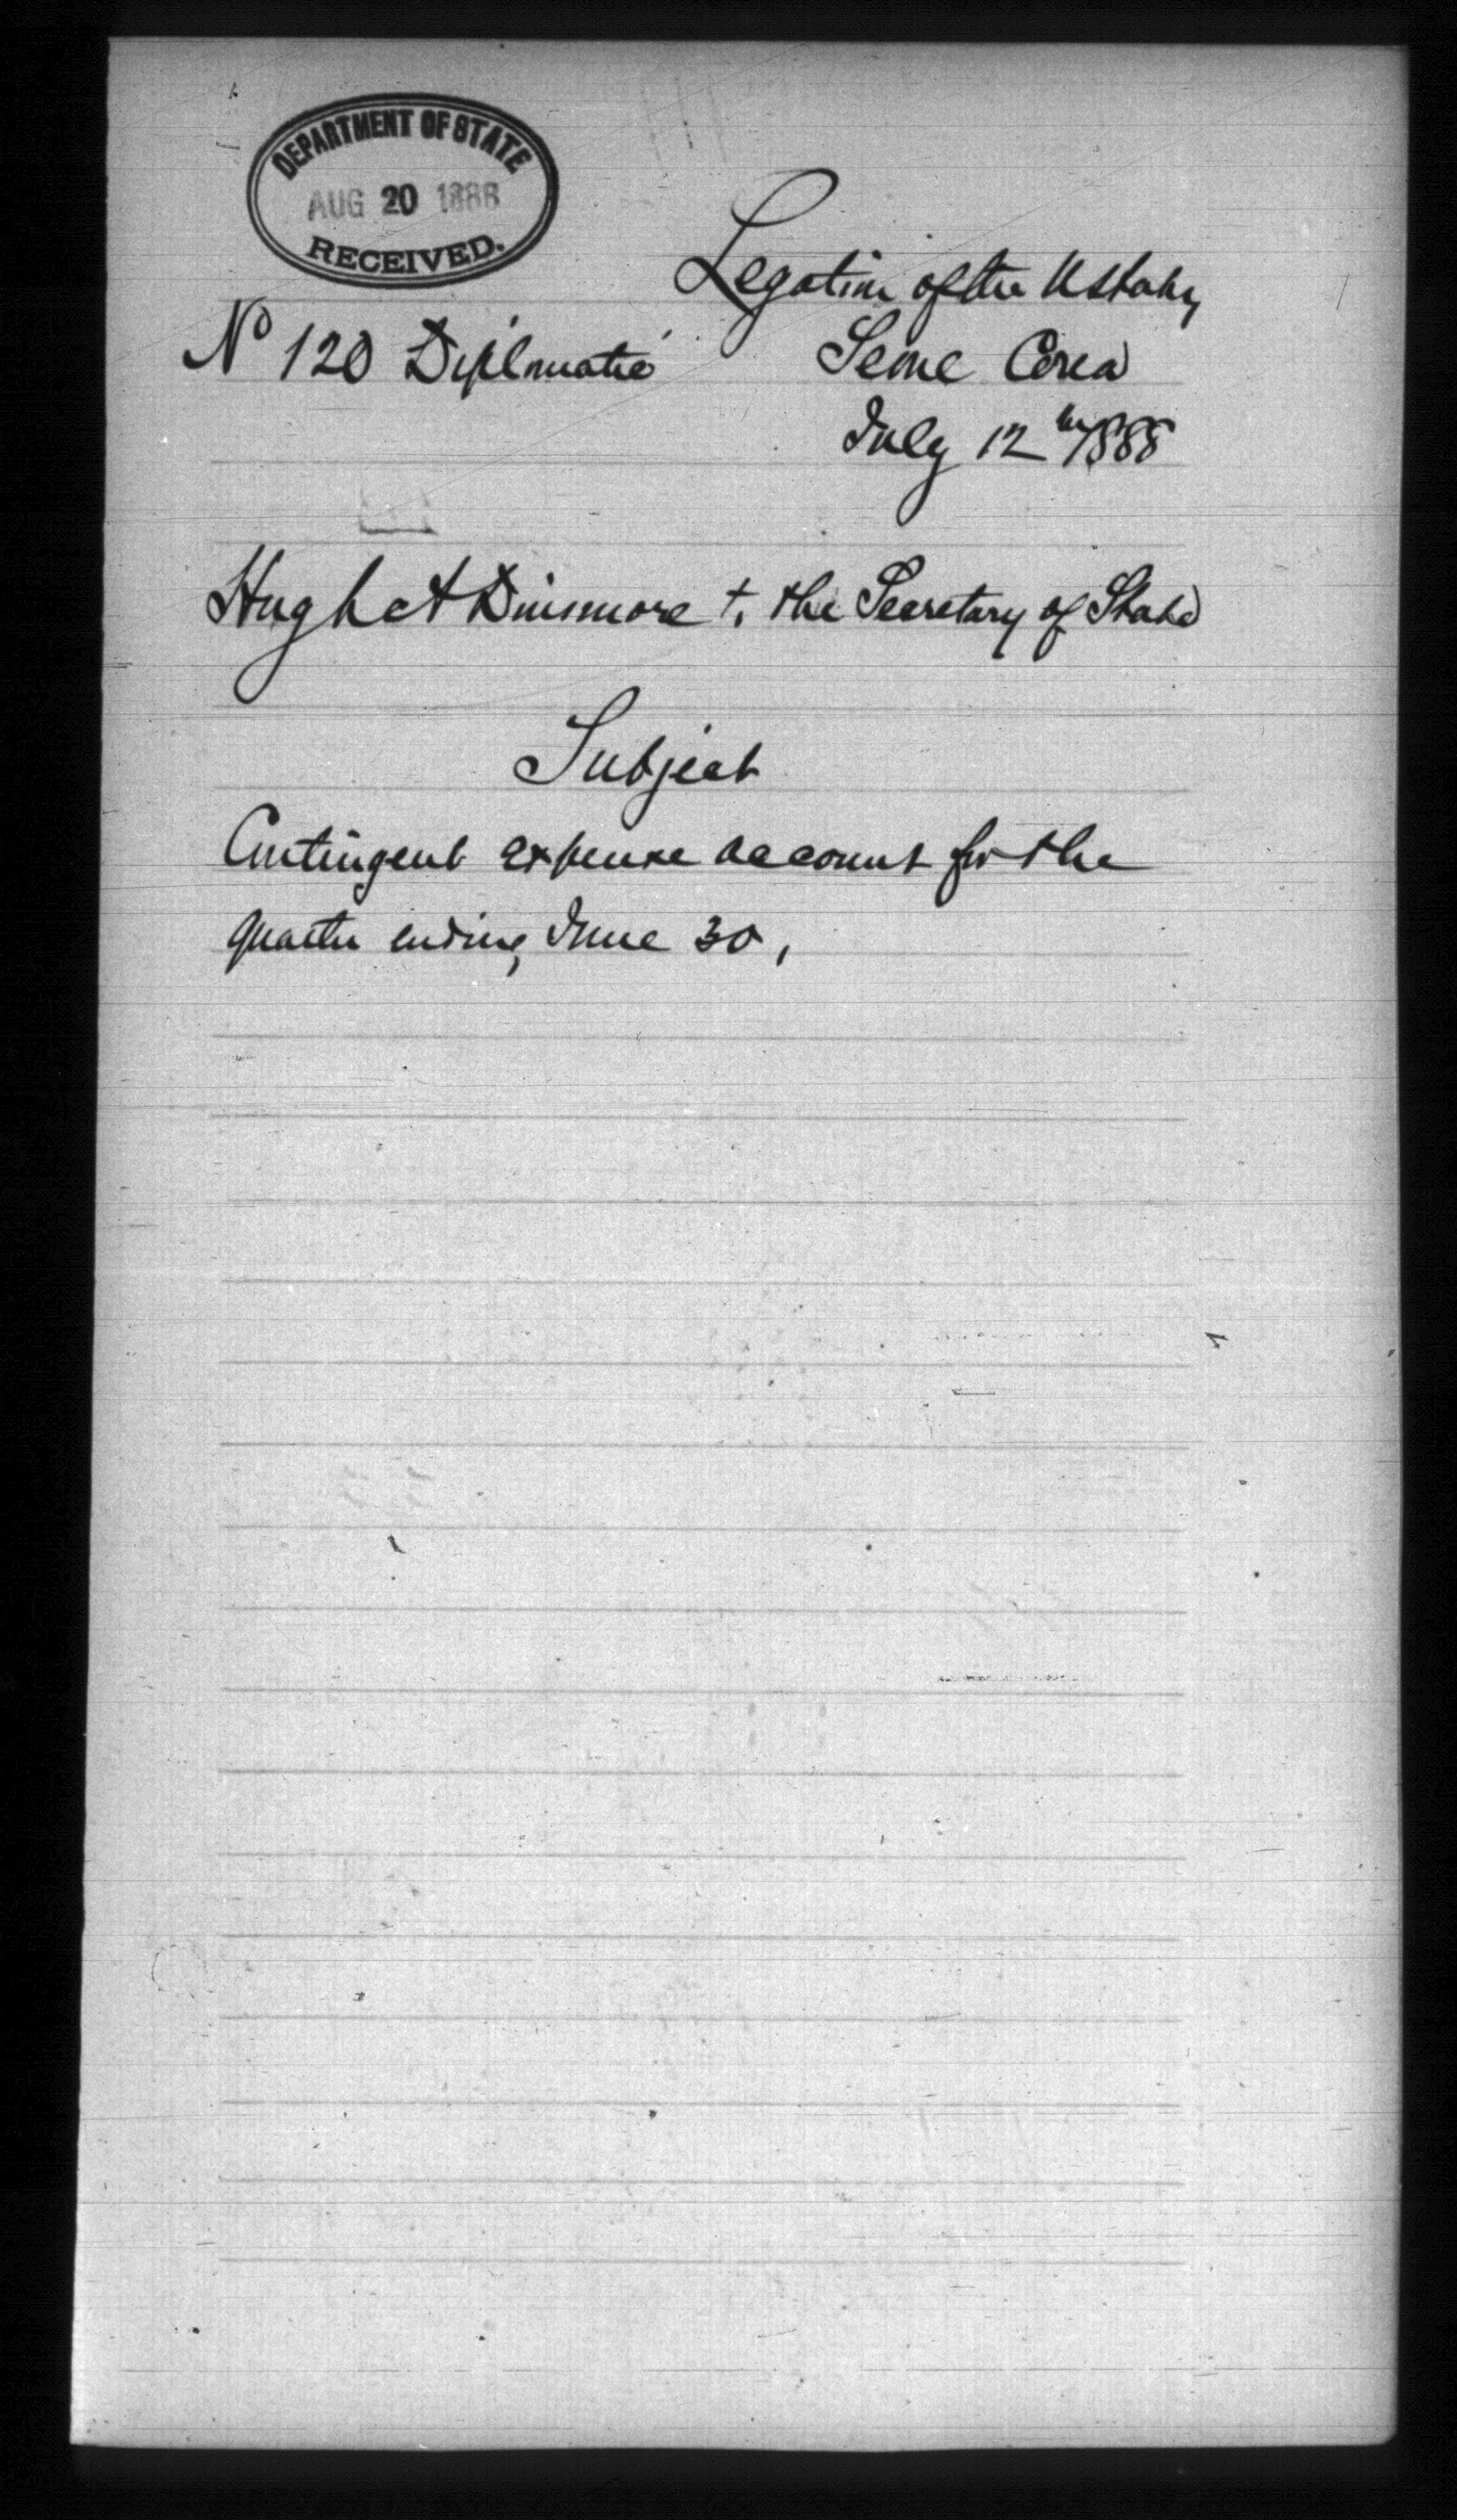 DEPARTMENT OF STATE
AUG 20 1888
RECEIVED.
Legation of the U States
No 120 Diplomatic
Seoul Corea
July 12th 1888
Hugh A Dinsmore to the Secretary of State
Subject
Contingent expense account for the
quarter ending June 30,